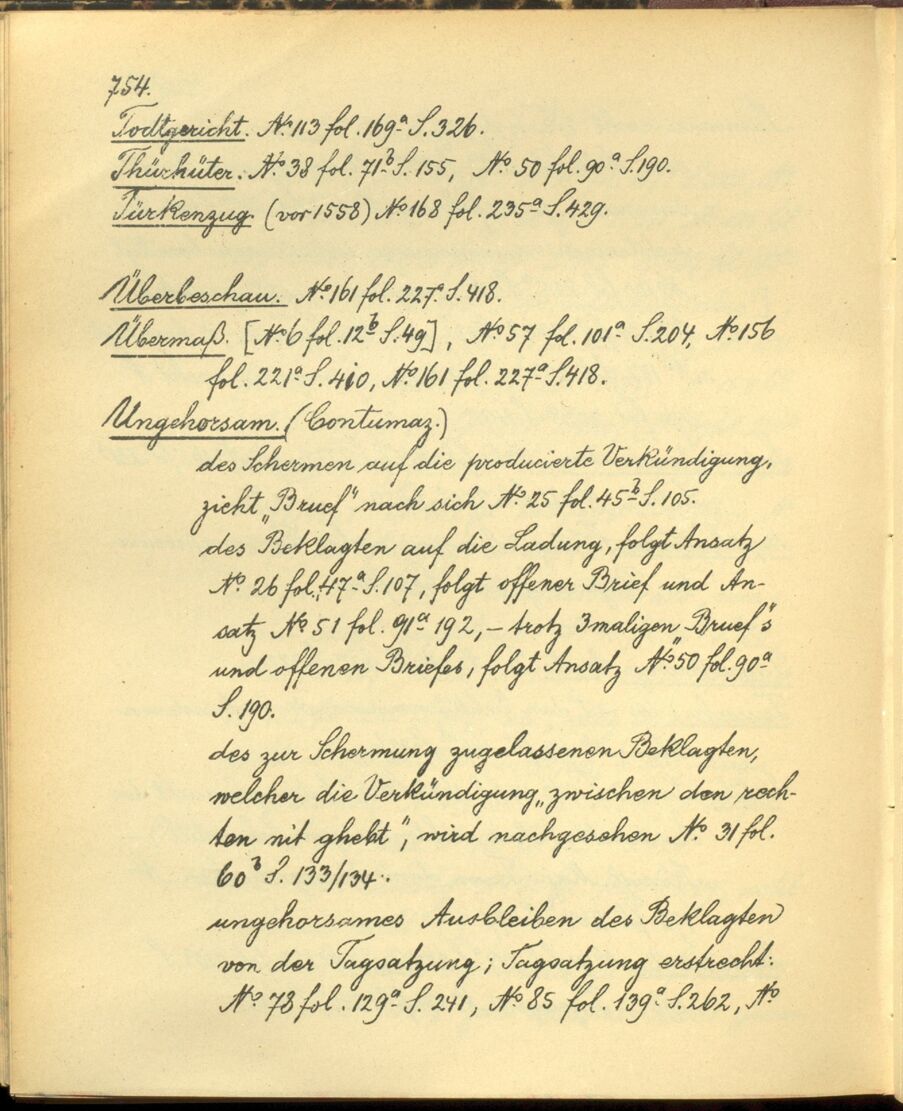 754.
Todtgericht. No. 113 fol. 169a S. 326.
Thürhüter. No. 38 fol. 71b S. 155, No. 50 fol. 90a S. 190.
Türkenzug (vor 1558) No. 168 fol. 235a S. 429.
Überbeschau. No. 161 fol. 227a S. 418.
Übermaß. [No. 6 fol. 12b S. 49], No. 57 fol. 101a S. 204, No. 156
fol. 221a S. 410, No. 161 fol. 227a S. 418.
Ungehorsam. (Contumaz.)
des Schermen auf die producierte Verkündigung,
zieht „Bruef“ nach sich No. 25 fol. 45b S. 105.
des Beklagten auf die Ladung, folgt Ansatz
No. 26 fol. 47a S. 107, folgt offener Brief und An-
satz No. 51 fol. 91a 192, – trotz 3maligen „Bruef“s
und offenen Briefes, folgt Ansatz No. 50 fol. 90a
S. 190.
des zur Schermung zugelassenen Beklagten,
welcher die Verkündigung „zwischen den rech-
ten nit ghebt“, wird nachgesehen No. 31 fol.
60b S. 133/134.
ungehorsames Ausbleiben des Beklagten
von der Tagsatzung; Tagsatzung erstrecht:
No. 78 fol. 129a S. 241, No. 85 fol. 139a S. 262, No